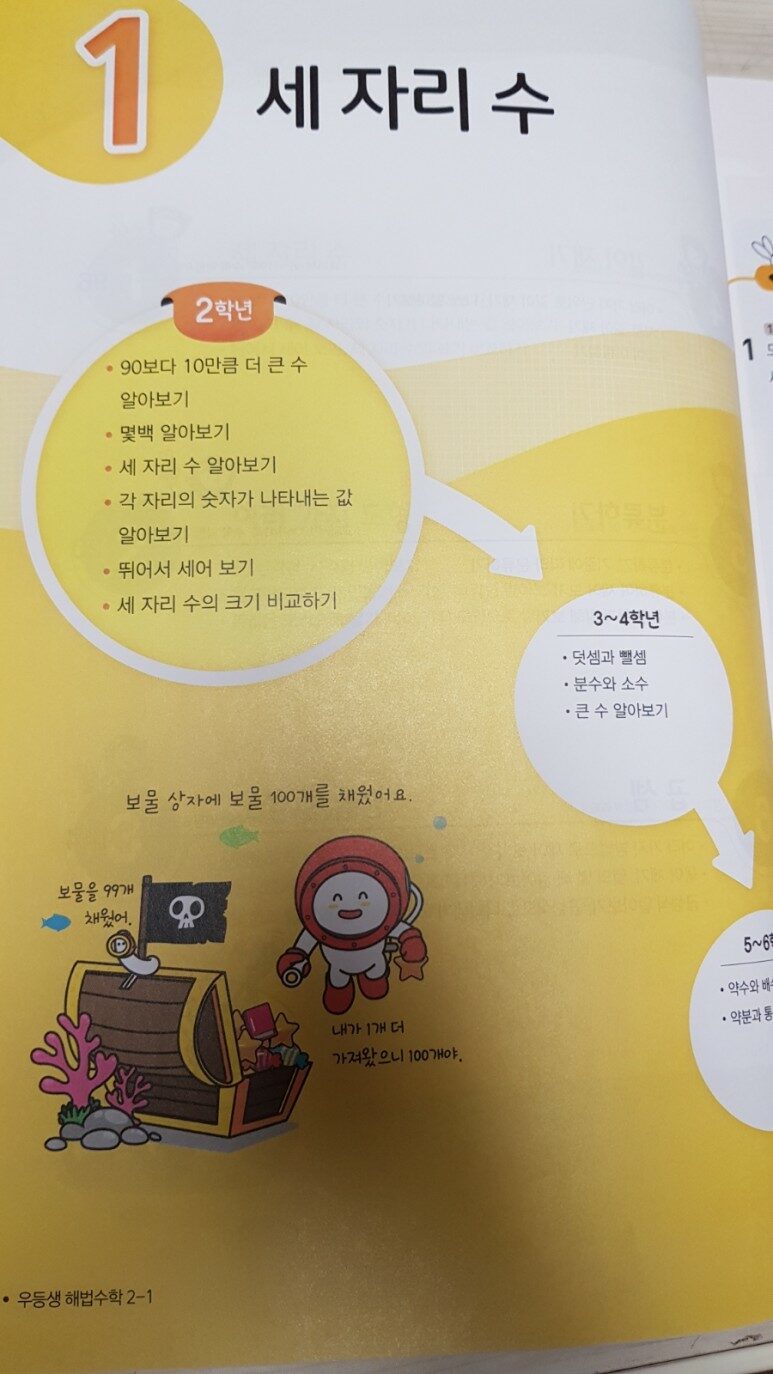 1
세 자리 수
2학년
• 90보다 10만큼 더 큰 수
알아보기
• 몇백 알아보기
• 세 자리 수 알아보기
• 각 자리의 숫자가 나타내는 값
알아보기
• 뛰어서 세어 보기
• 세 자리 수의 크기 비교하기
3~4학년
• 덧셈과 뺄셈
• 분수와 소수
• 큰 수 알아보기
5~6
• 약수와
• 약분과
보물 상자에 보물 100개를 채웠어요.
보물을 99개
채웠어.
내가 1개 더
가져왔으니 100개야.
• 우등생 해법수학 2-1
1